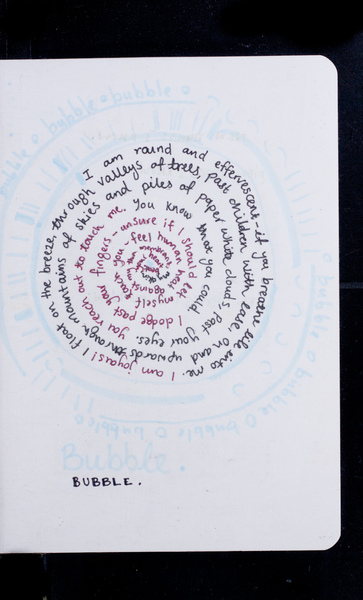 I am round and effervescent - if you breathe life into me. I am joyous! I float on the breeze, through valleys of trees, past children with ease, on and upwards through mountains of skies and piles of paper white clouds, past your eyes. you reach out to touch me. You know that you could. I dodge past your fingers - unsure if I should let myself touch you, feel human against
bubble o bubble o bubble o
bubble o bubble o bubble o bubble
Bubble.
BUBBLE.